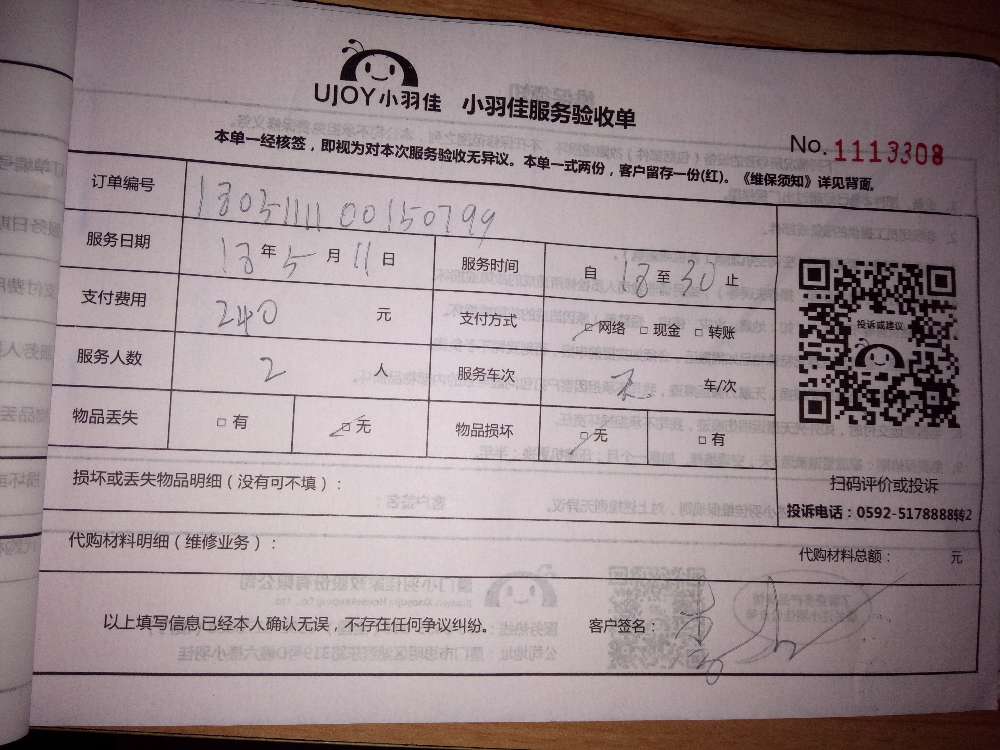 UJOY小羽佳 小羽佳服务验收单
No. 1113308
本单一经核签，即视为对本次服务验收无异议。本单一式两份，客户留存一份(红)。《维保须知》详见背面。
订单编号 1805111100150799
服务日期 18 年 5 月 11 日 服务时间 自 18 至 30 止
支付费用 240 元 支付方式 □网络 □现金 □转账
服务人数 2 人 服务车次 无 车/次
物品丢失 □有 □无 物品损坏 □无 □有
投诉或建议
扫码评价或投诉
投诉电话：0592-5178888转2
损坏或丢失物品明细（没有可不填）：
代购材料明细（维修业务）： 代购材料总额： 元
以上填写信息已经本人确认无误，不存在任何争议纠纷。 客户签名：